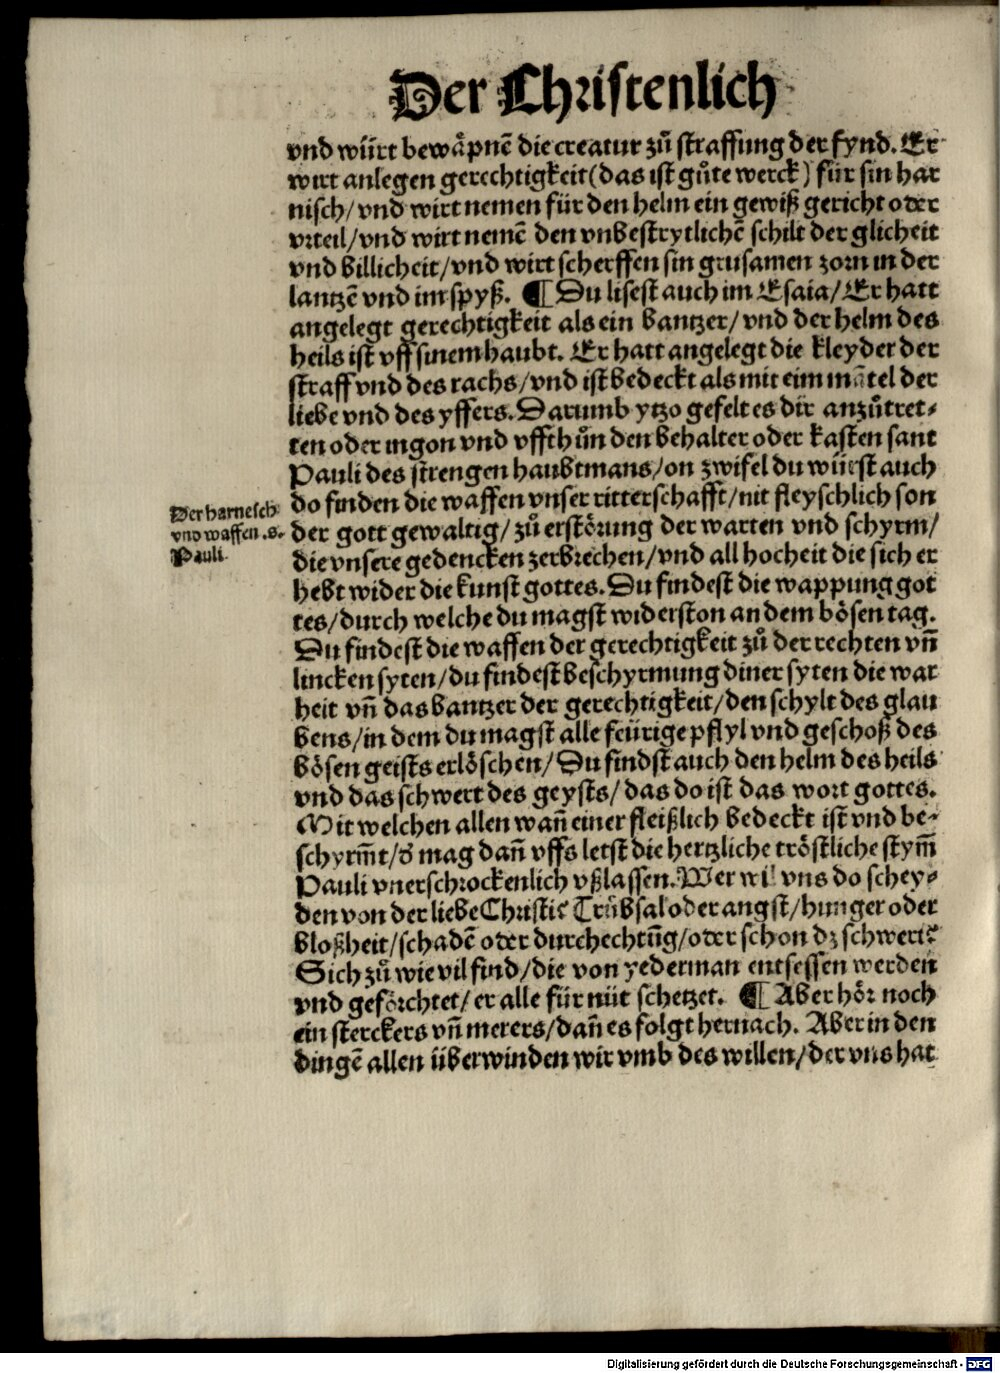 Der Christenlich
vnd würt bewåpnē die creatur zů straffung der fynd. Er
wirt anlegen gerechtigkeit (das ist gůte werck) für sin har
nisch/ vnd wirt nemen für den helm ein gewiß gericht oder
vrteil/ vnd wirt nemē den vnbestrytlichē schilt der glicheit
vnd billicheit/ vnd wirt scherffen sin grusamen zorn in der
lantzē vnd im spyß. ¶ Du lisest auch im Esaia/ Er hatt
angelegt gerechtigkeit als ein bantzer/ vnd der helm des
heils ist vff sinem haubt. Er hatt angelegt die kleyder der
straff vnd des rachs/ vnd ist bedeckt als mit eim mātel der
liebe vnd des yffers. Darumb ytzo gefelt es dir anzůtret-
ten oder ingon vnd vffthůn den behalter oder kasten sant
Pauli des strengen haubtmans/ on zwifel du würst auch
Der harnesch
vnd waffen .s.
Pauli
do finden die waffen vnser ritterschafft/ nit fleyschlich son
der gott gewaltig/ zů erstörung der warten vnd schyrm/
die vnsere gedencken zerbrechen/ vnd all hocheit die sich er
hebt wider die kunst gottes. Du findest die wappung got
tes/ durch welche du magst widerston an dem bösen tag.
Du findest die waffen der gerechtigkeit zů der rechten vñ
lincken syten/ du findest beschyrmung diner syten die war
heit vñ das bantzer der gerechtigkeit/ den schylt des glau
bens/ in dem du magst alle feürige pflyl vnd geschoß des
bösen geists erlöschen/ Du findst auch den helm des heils
vnd das schwert des geysts/ das do ist das wort gottes.
Mit welchen allen wañ einer fleißlich bedeckt ist vnd be-
schyrm̄t/ d' mag dañ vffs letst die hertzliche tröstliche stym̄
Pauli vnerschrockenlich vßlassen. Wer wil vns do schey-
den von der liebe Christi? Trübsal oder angst/ hunger oder
bloßheit/ schadē oder durchechtūg/ oder schon dz schwert?
Sich zů wie vil find/ die von yederman entsessen werden
vnd geförchtet/ er alle für nüt schetzet. ¶ Aber hör noch
ein sterckers vñ merers/ dañ es folgt hernach. Aber in den
dingē allen überwinden wir vmb des willen/ der vns hat
Digitalisierung gefördert durch die Deutsche Forschungsgemeinschaft - DFG